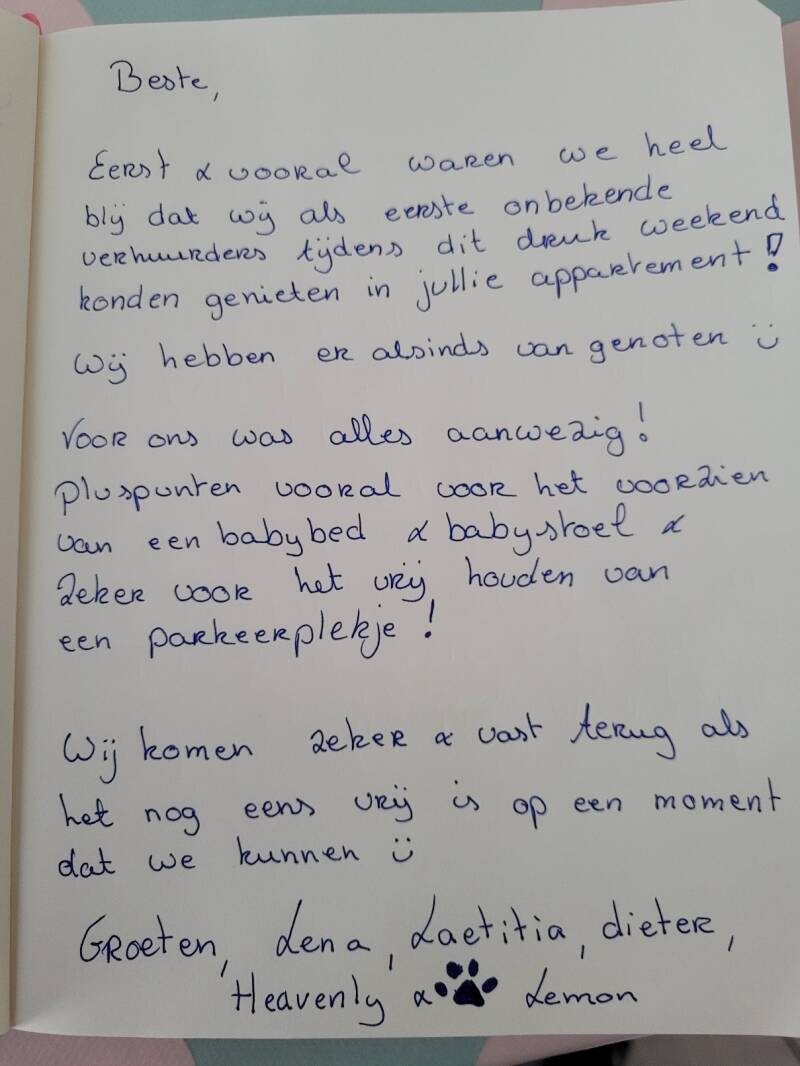 Beste,
Eerst & vooral waren we heel
blij dat wij als eerste onbekende
verhuurders tijdens dit druk weekend
konden genieten in jullie appartement!
Wij hebben er alsinds van genoten ü
Voor ons was alles aanwezig!
Pluspunten vooral voor het voorzien
van een babybed & babystoel &
zeker voor het vrij houden van
een parkeerplekje!
Wij komen zeker & vast terug als
het nog eens vrij is op een moment
dat we kunnen ü
Groeten, Lena, Laetitia, dieter,
Heavenly & Lemon